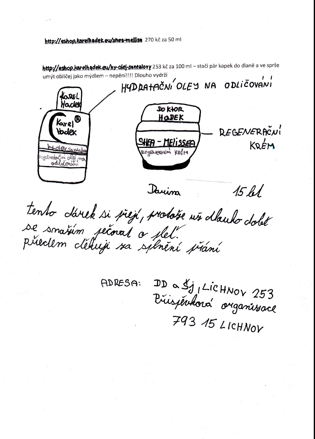 http://eshop.karelhadek.eu/shea-melisa 270 kč za 50 ml
253 kč za 100 ml – stačí pár kapek do dlaně a ve sprše
umýt obličej jako mýdlem – nepění!!!! Dlouho vydrží
HYDRATAČNÍ OLEJ NA ODLIČOVÁNÍ
Karel
Hadek
Karel
Hadek
DOKTOR
HADEK
SHEA - MELISSA
REGENERAČNÍ
KRÉM
Darina 15 let
tento dárek si přeji, protože už dlouho dobu
se snažím pečovat o pleť.
předem děkuji za splnění přání
ADRESA: DD a ŠJ, LICHNOV 253
Příspěvková organisace
793 15 LICHNOV